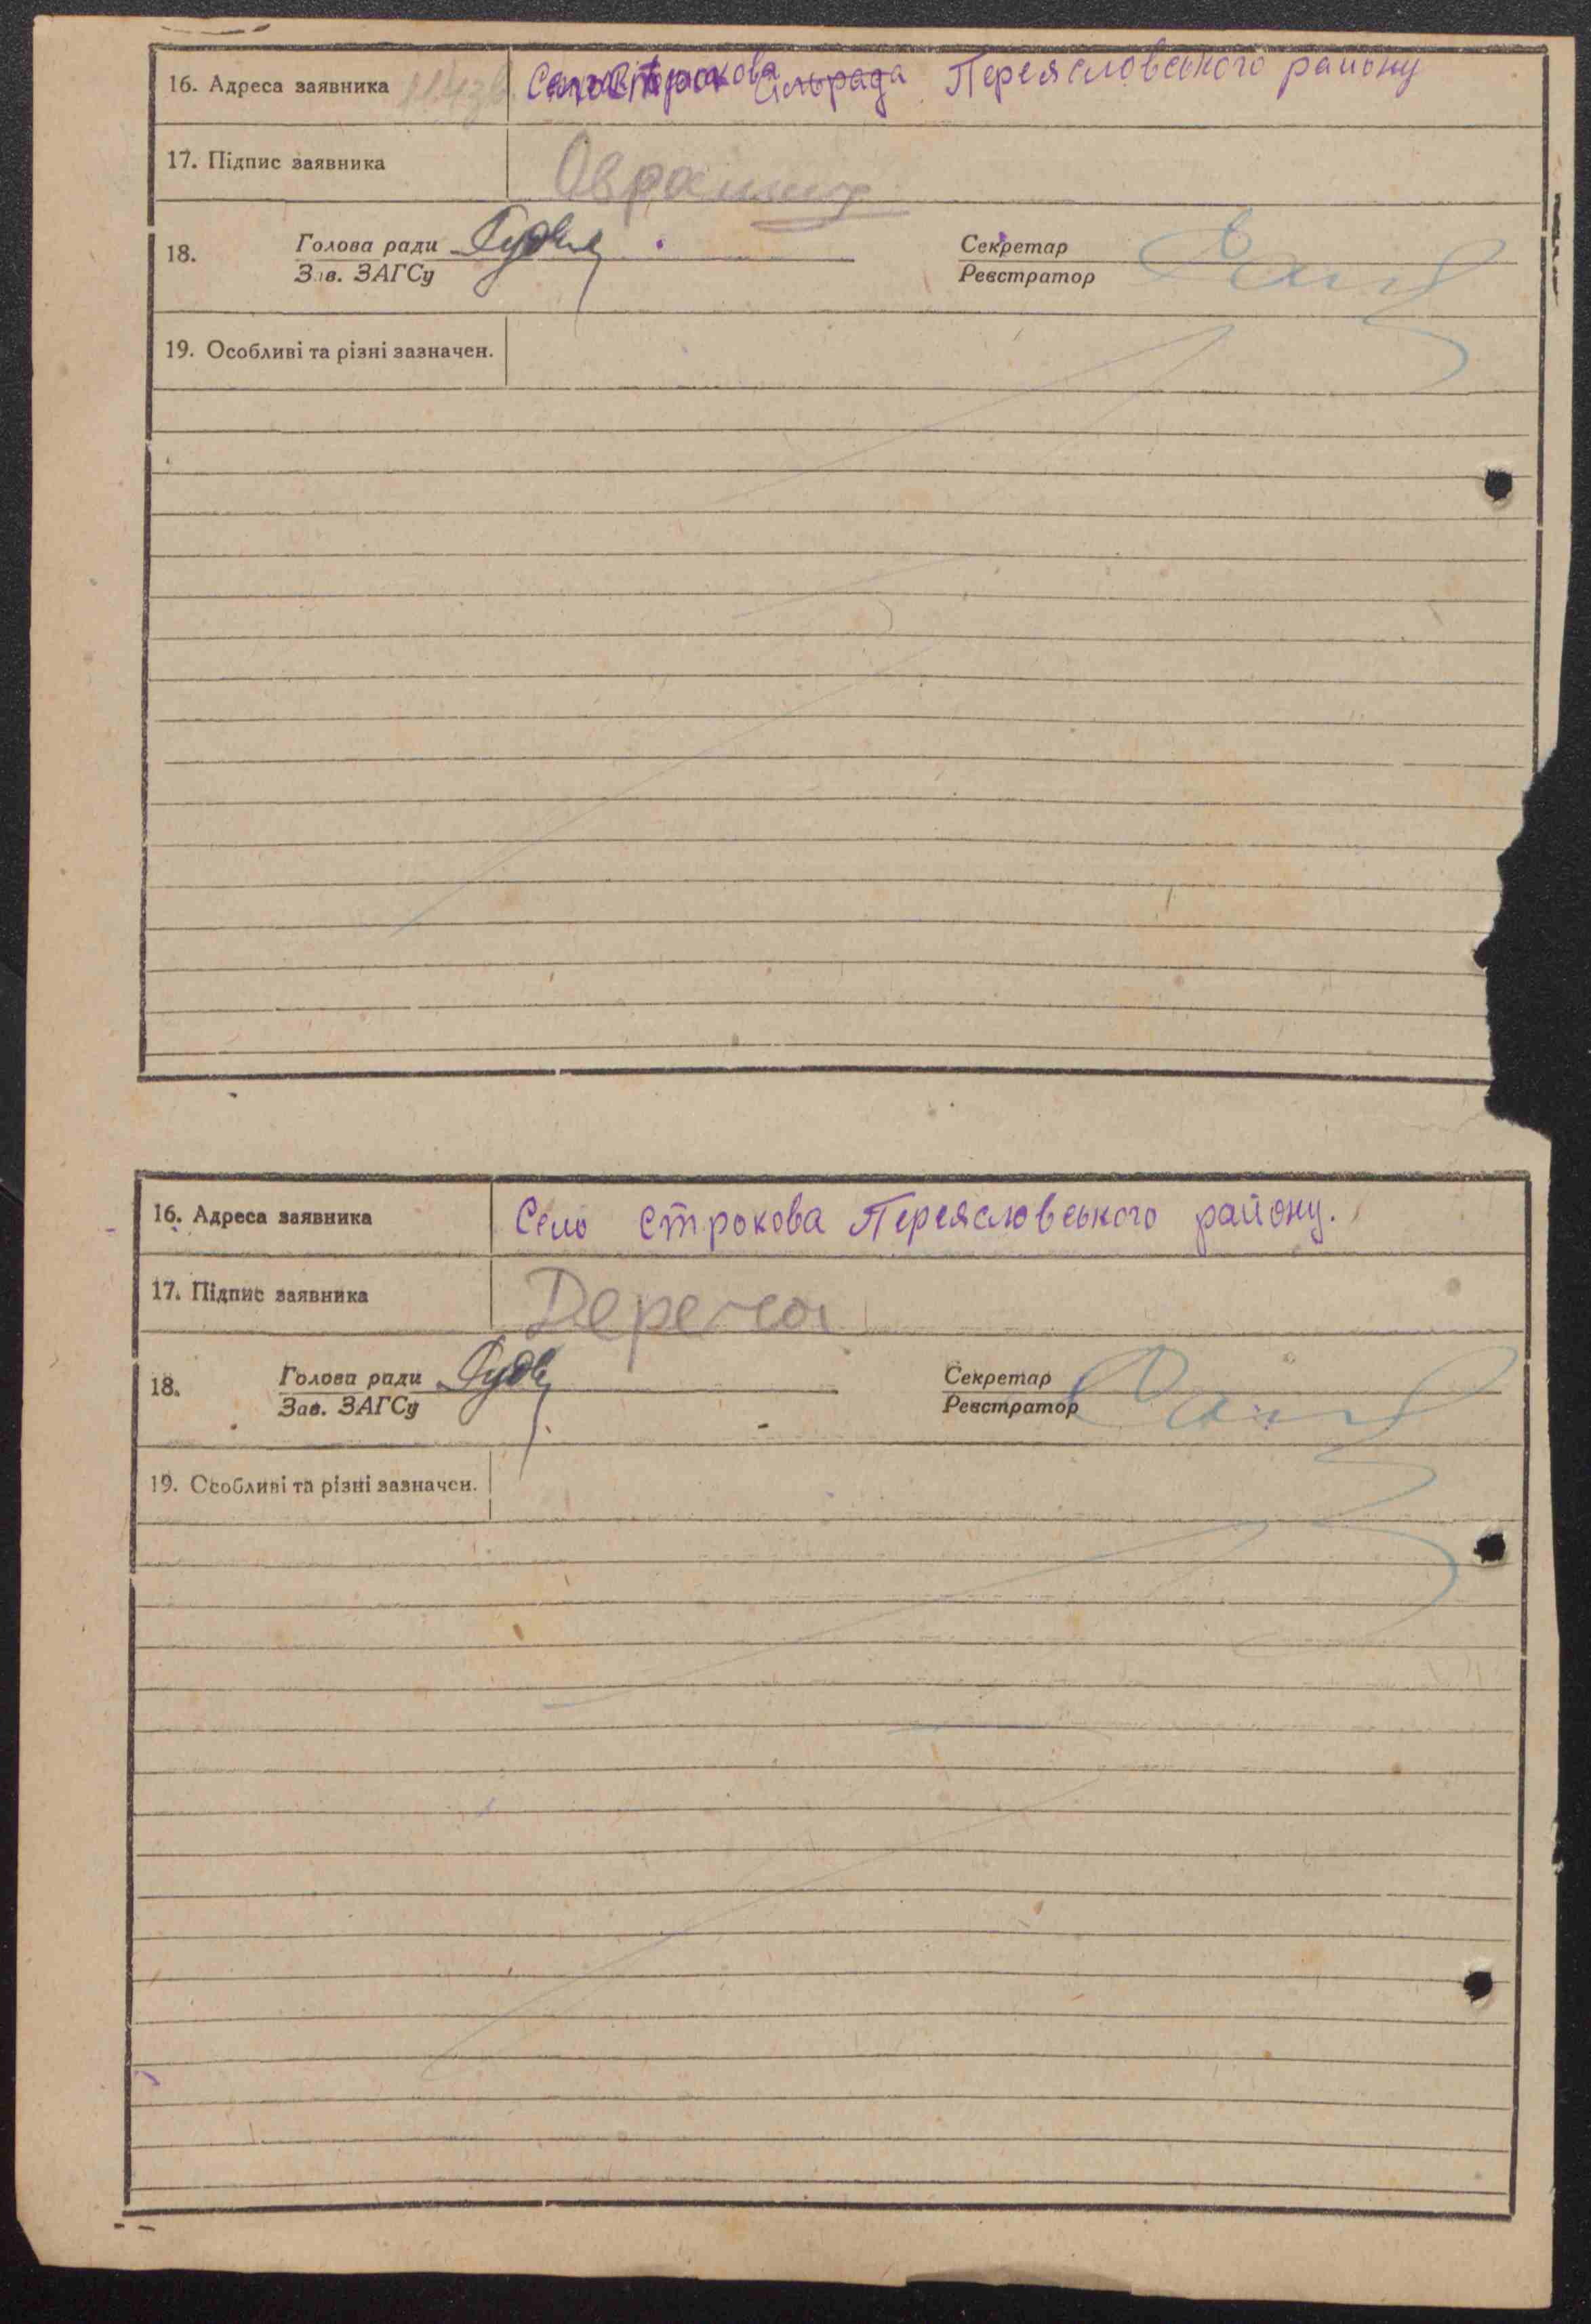 16. Адреса заявника Село Строкова сільрада Переясловського району
17. Підпис заявника
18. Голова ради Секретар
Зав. ЗАГСу Реєстратор
19. Особливі та різні зазначен.
16. Адреса заявника Село Строкова Переясловського району.
17. Підпис заявника Дереча
18. Голова ради Секретар
Зав. ЗАГСу Реєстратор
19. Особливі та різні зазначен.